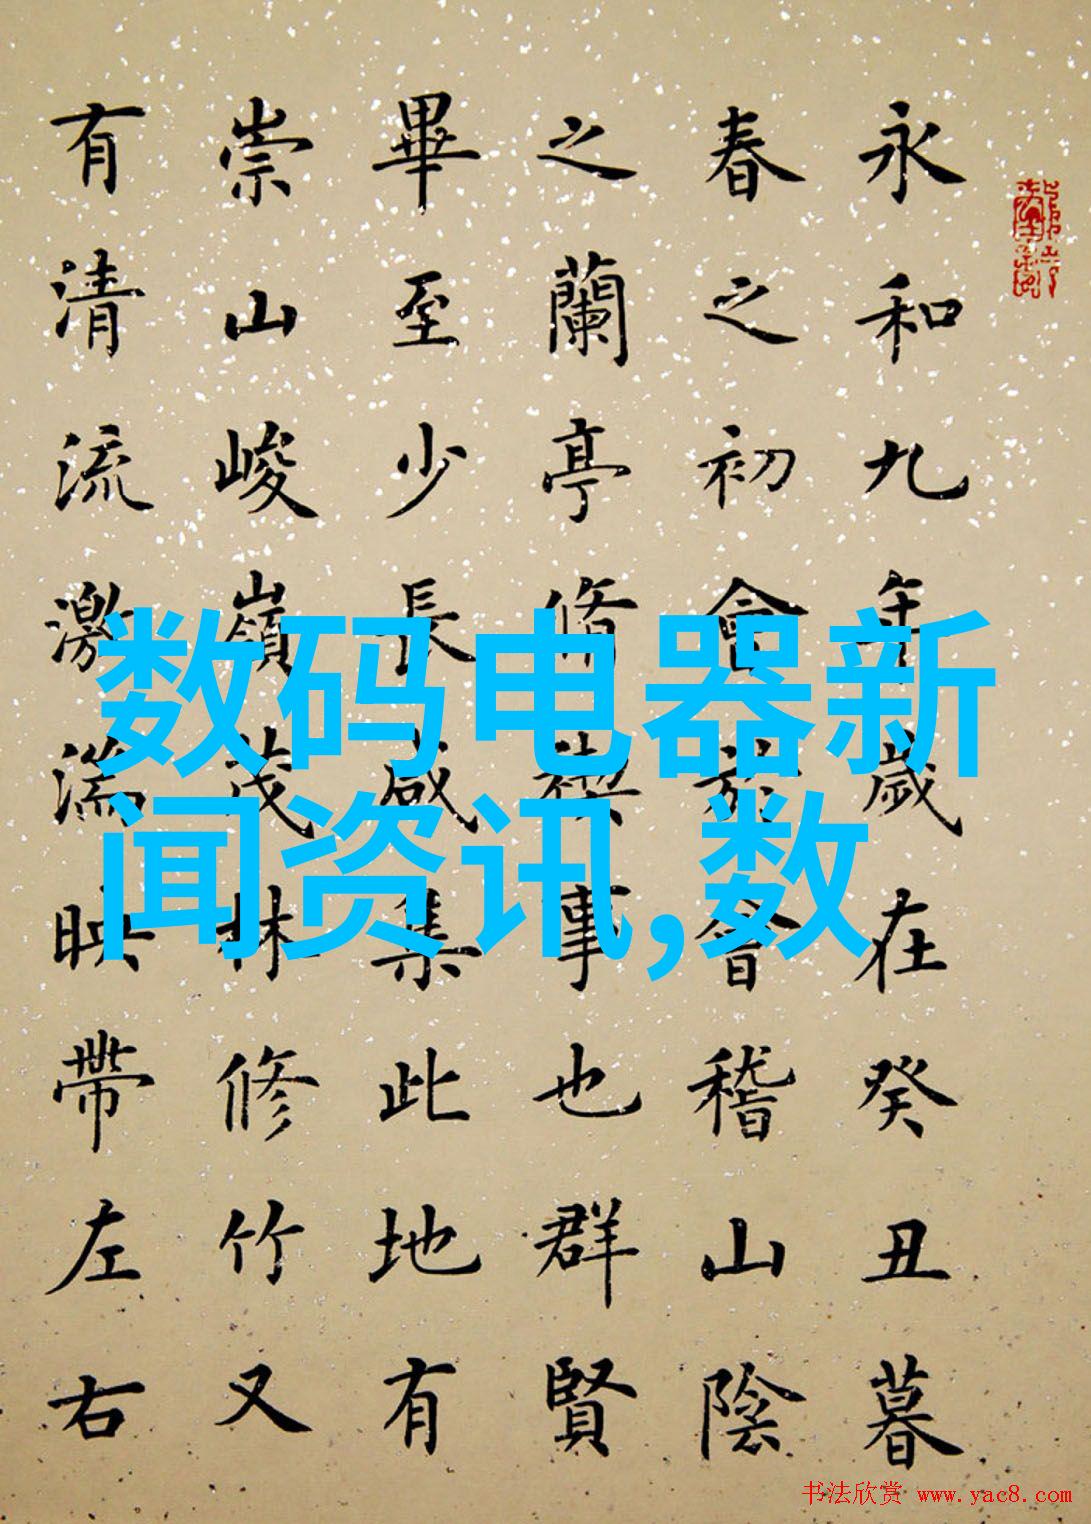 永和九年歲在癸丑暮
春之初會於會稽山陰
之蘭亭脩禊事也群賢
畢至少長咸集此地有
崇山峻嶺茂林修竹又
有清流激湍映帶左右
数码电器新
闻资讯,数
书法欣赏 www.yac8.com